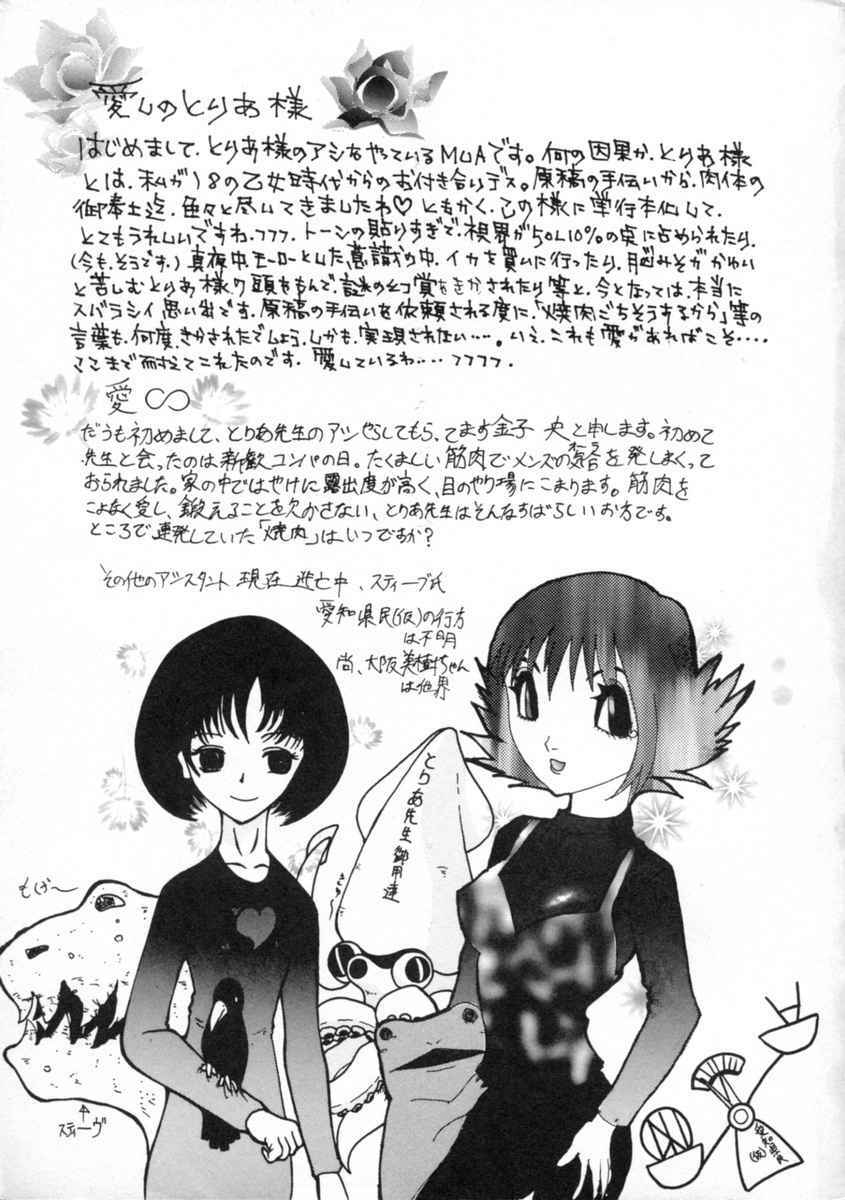 愛しのとりあ様
はじめまして、とりあ様のアシをやっているMUAです。何の因果か、とりあ様
とは、私が18の乙女時代からのお付き合いデス。原稿の手伝いから、肉体の
御奉仕迄、色々と尽してきましたわ♡ ともかく、この様に単行本化して、
とてもうれしいですね、フフフ。トーンの貼りすぎで、視界が50L10%の点に占められたり、
(今も、そうです。) 真夜中、モーローとした意識の中、イカを買いに行ったり、脳みそがかゆい
と苦しむとりあ様の頭をもんで、謎の幻覚をきかされたり等と、今となっては、本当に
スバラシイ思い出です。原稿の手伝いを依頼される度に、「焼肉ごちそうするから」等の
言葉も、何度、きかされたでしょう、しかも、実現されない‥‥。いえ、これも愛があればこそ‥‥
ここまで耐えてこれたのです。愛しているわ‥‥フフフフ。
愛 ∞
だうも初めまして、とりあ先生のアシやらしてもらってます金子 央と申します。初めて
先生と会ったのは新歓コンパの日。たくましい筋肉でメンズの気合を発しまくって
おられました。家の中ではやけに露出度が高く、目のやり場にこまります。筋肉を
こよなく愛し、鍛えることを欠かさない、とりあ先生はそんなすばらしいお方です。
ところで連発していた「焼肉」はいつですか?
その他のアシスタント 現在 逃亡中、スティーブ氏
愛知県民(仮)の行方
は不明
尚、大阪美樹ちゃん
は他界
とりあ先生御用達
もげ〜
↑
スティーヴ
愛知県民
(仮)